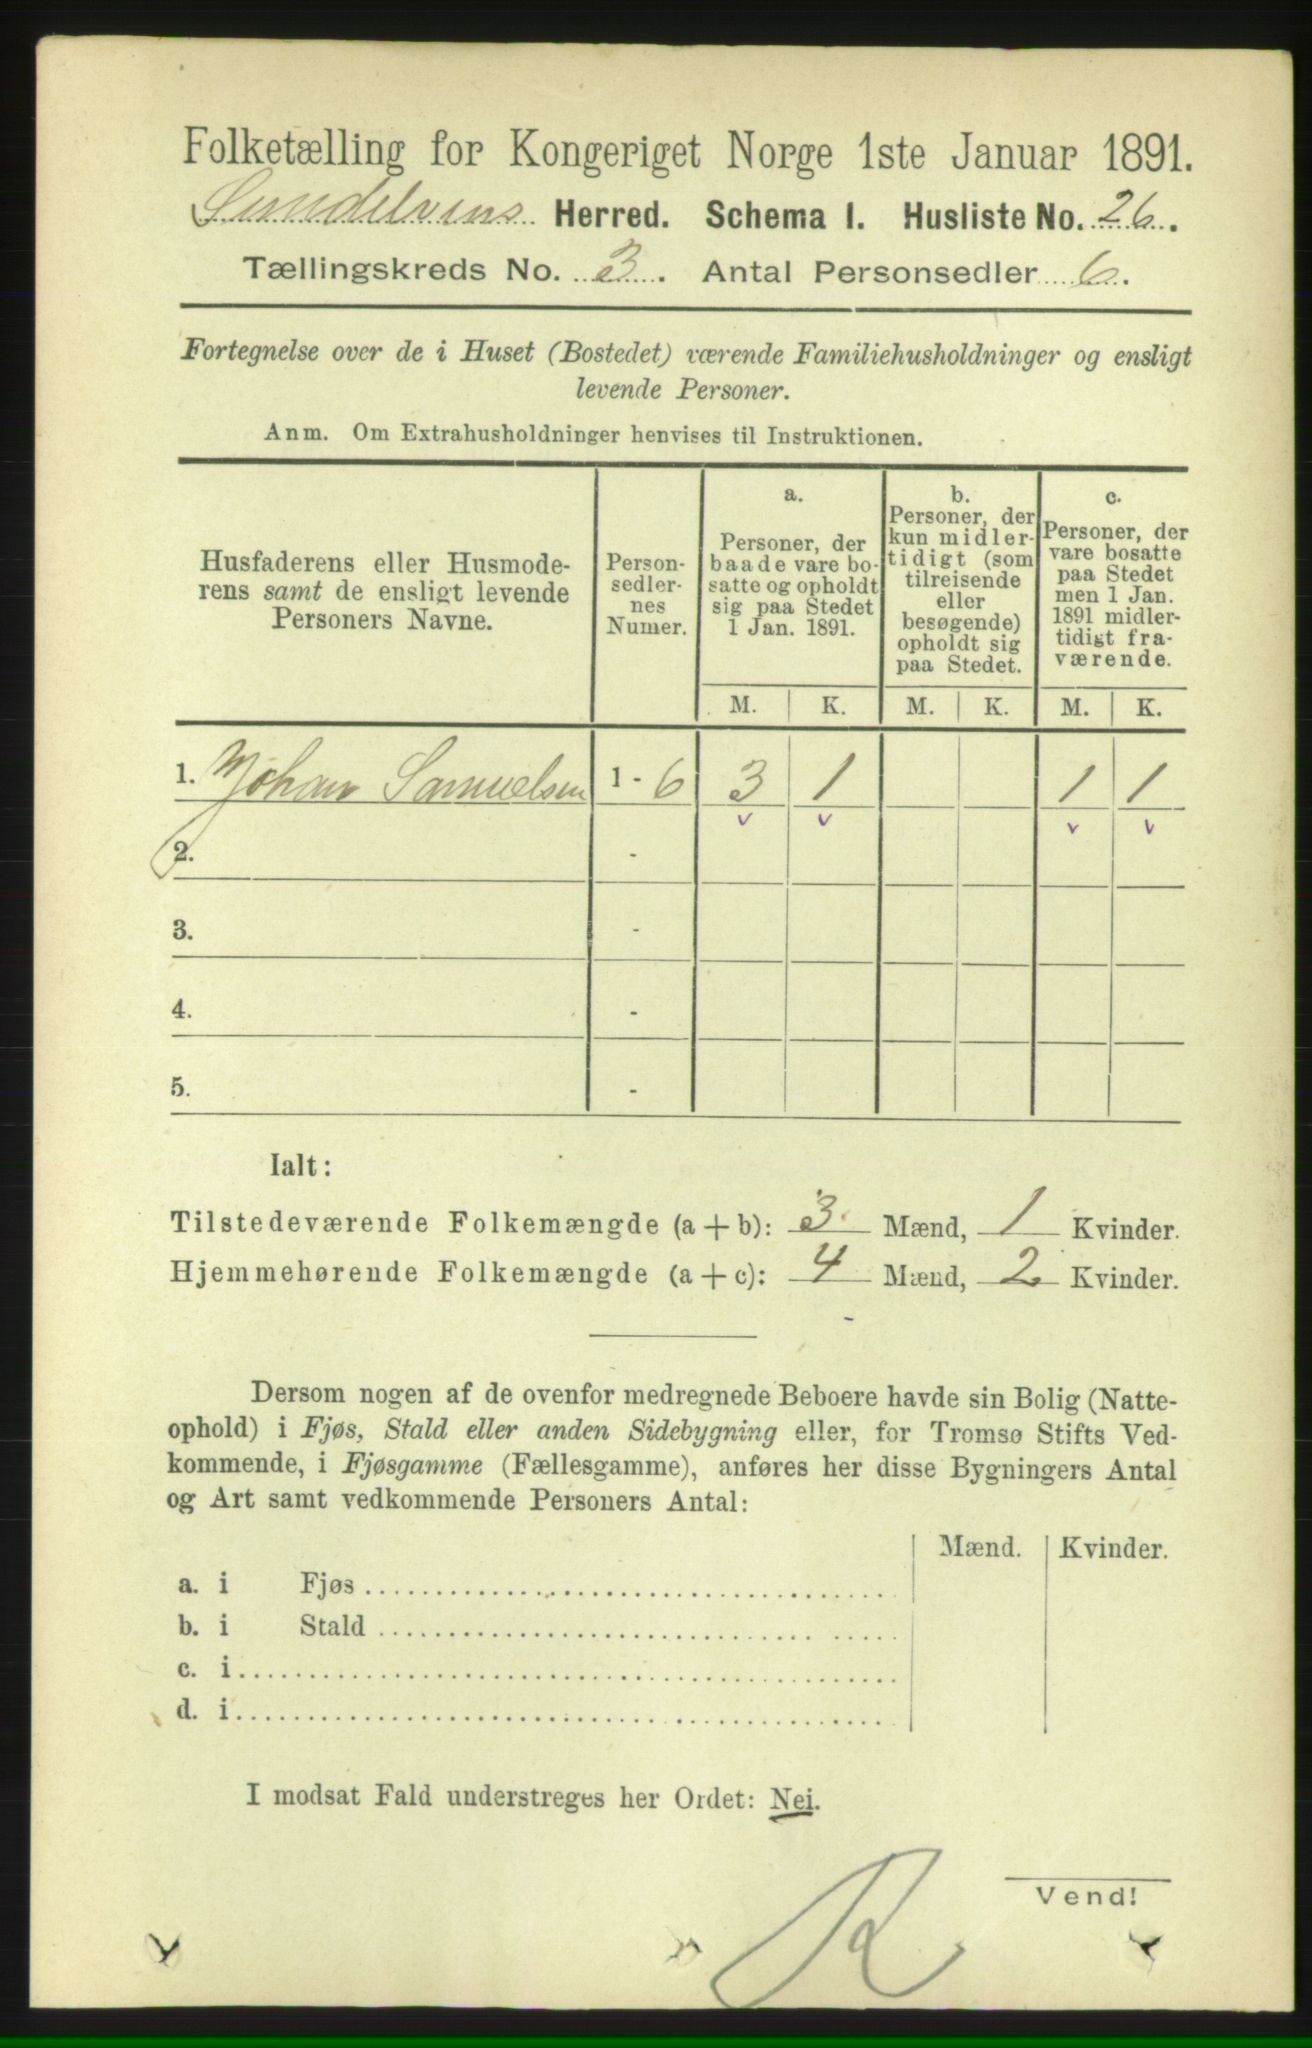 Folketælling for Kongeriget Norge 1ste Januar 1891.
Sundelvens Herred. Schema I. Husliste No. 26.
Tællingskreds No. 3. Antal Personsedler 6.
Fortegnelse over de i Huset (Bostedet) værende Familiehusholdninger og ensligt
levende Personer.
Anm. Om Extrahusholdninger henvises til Instruktionen.
Husfaderens eller Husmode-
rens samt de ensligt levende
Personers Navne.
Person-
sedler-
nes
Numer.
a.
Personer, der
baade vare bo-
satte og opholdt
sig paa Stedet
1 Jan. 1891.
b.
Personer, der
kun midler-
tidigt (som
tilreisende
eller
besøgende)
opholdt sig
paa Stedet.
c.
Personer, der
vare bosatte
paa Stedet
men 1 Jan.
1891 midler-
tidigt fra-
værende.
M. K. M. K. M. K.
1. Johan Samuelsen 1 - 6 3 1 1 1
2. -
3. -
4. -
5. -
Ialt:
Tilstedeværende Folkemængde (a + b): 3 Mænd, 1 Kvinder.
Hjemmehørende Folkemængde (a + c): 4 Mænd, 2 Kvinder.
Dersom nogen af de ovenfor medregnede Beboere havde sin Bolig (Natte-
ophold) i Fjøs, Stald eller anden Sidebygning eller, for Tromsø Stifts Ved-
kommende, i Fjøsgamme (Fællesgamme), anføres her disse Bygningers Antal
og Art samt vedkommende Personers Antal:
Mænd. Kvinder.
a. i Fjøs
b. i Stald
c. i
d. i
I modsat Fald understreges her Ordet: Nei.
Vend!
R